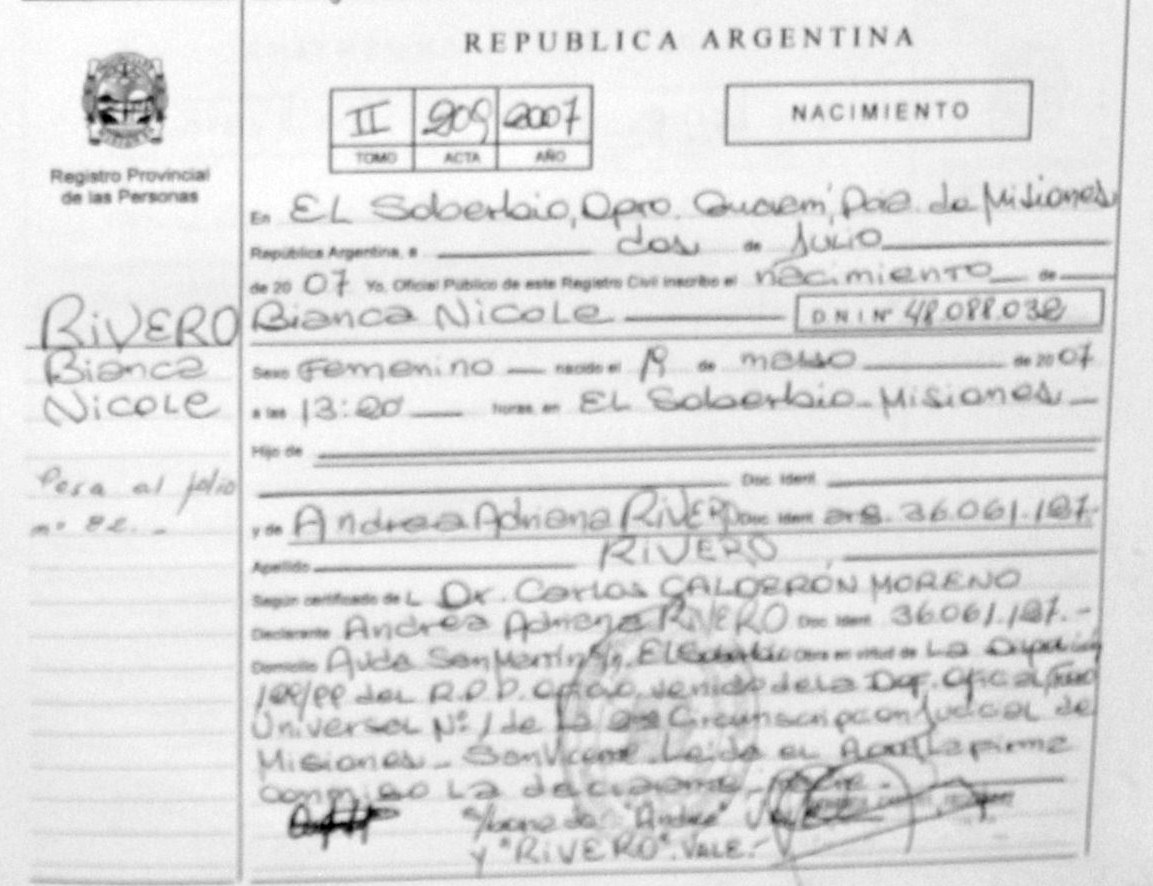 REPUBLICA ARGENTINA
II 209 2007
TOMO ACTA AÑO
NACIMIENTO
Registro Provincial
de las Personas
En EL Soberbio, Dpto. Guaraní, Pcia. de Misiones
República Argentina, a dos de Julio
de 20 07 Yo, Oficial Público de este Registro Civil inscribo el nacimiento de
RIVERO
Bianca
Nicole
Bianca Nicole DNI Nº 48.088.038
Sexo Femenino nacido el 19 de marzo de 20 07
a las 13:20 horas en EL Soberbio - Misiones
Hijo de
Doc. Ident.
Pasa al folio
nº 82.-
y de Andrea Adriana RIVERO Doc. Ident. arg. 36.061.187.-
Apellido RIVERO
Según certificado de L Dr. Carlos CALDERÓN MORENO
Declarante Andrea Adriana RIVERO Doc. Ident. 36.061.187.-
Domicilio Avda San Martín S/n. EL Soberbio Obra en virtud de La
del R.P.P. venido de la Def. Oficial
Universal Nº 1 de La Circunscripcion Judicial de
Misiones - San Vicente. Leída el Acta La firma
conmigo La declarante.-
"Andrea"
y "RIVERO". VALE.-